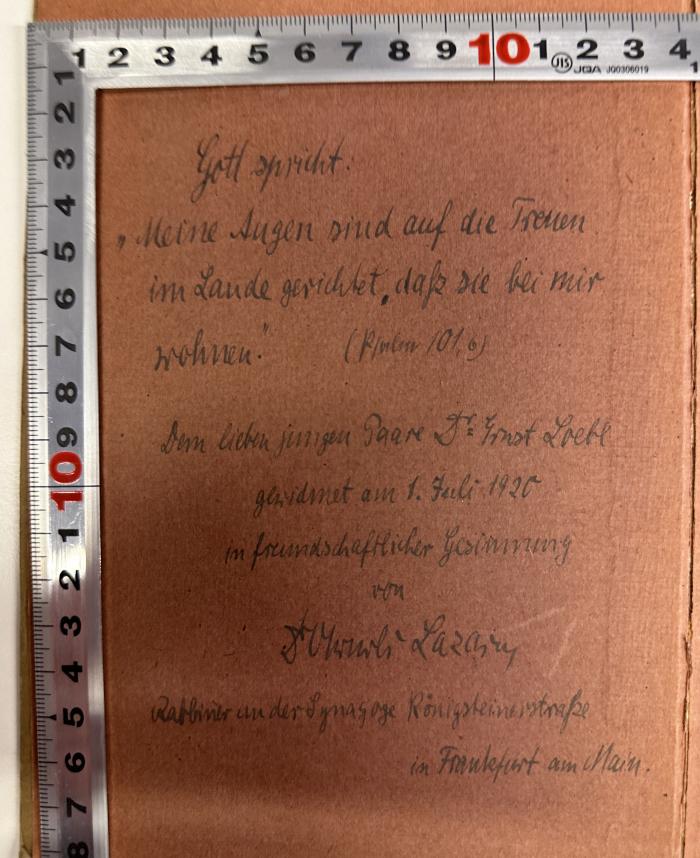 1 2 3 4 5 6 7 8 9 10 1 2 3 4
JIS JQA JQ0306019
1 2 3 4 5 6 7 8 9 10 1 2 3 4 5 6 7 8
Gott spricht:
„Meine Augen sind auf die Treuen
im Lande gerichtet, daß sie bei mir
wohnen." (Psalm 101,6)
Dem lieben jungen Paare Dr. Ernst Loebl
gewidmet am 1. Juli 1920
in freundschaftlicher Gesinnung
von
Dr Lazarus
Rabbiner an der Synagoge Königsteinerstraße
in Frankfurt am Main.